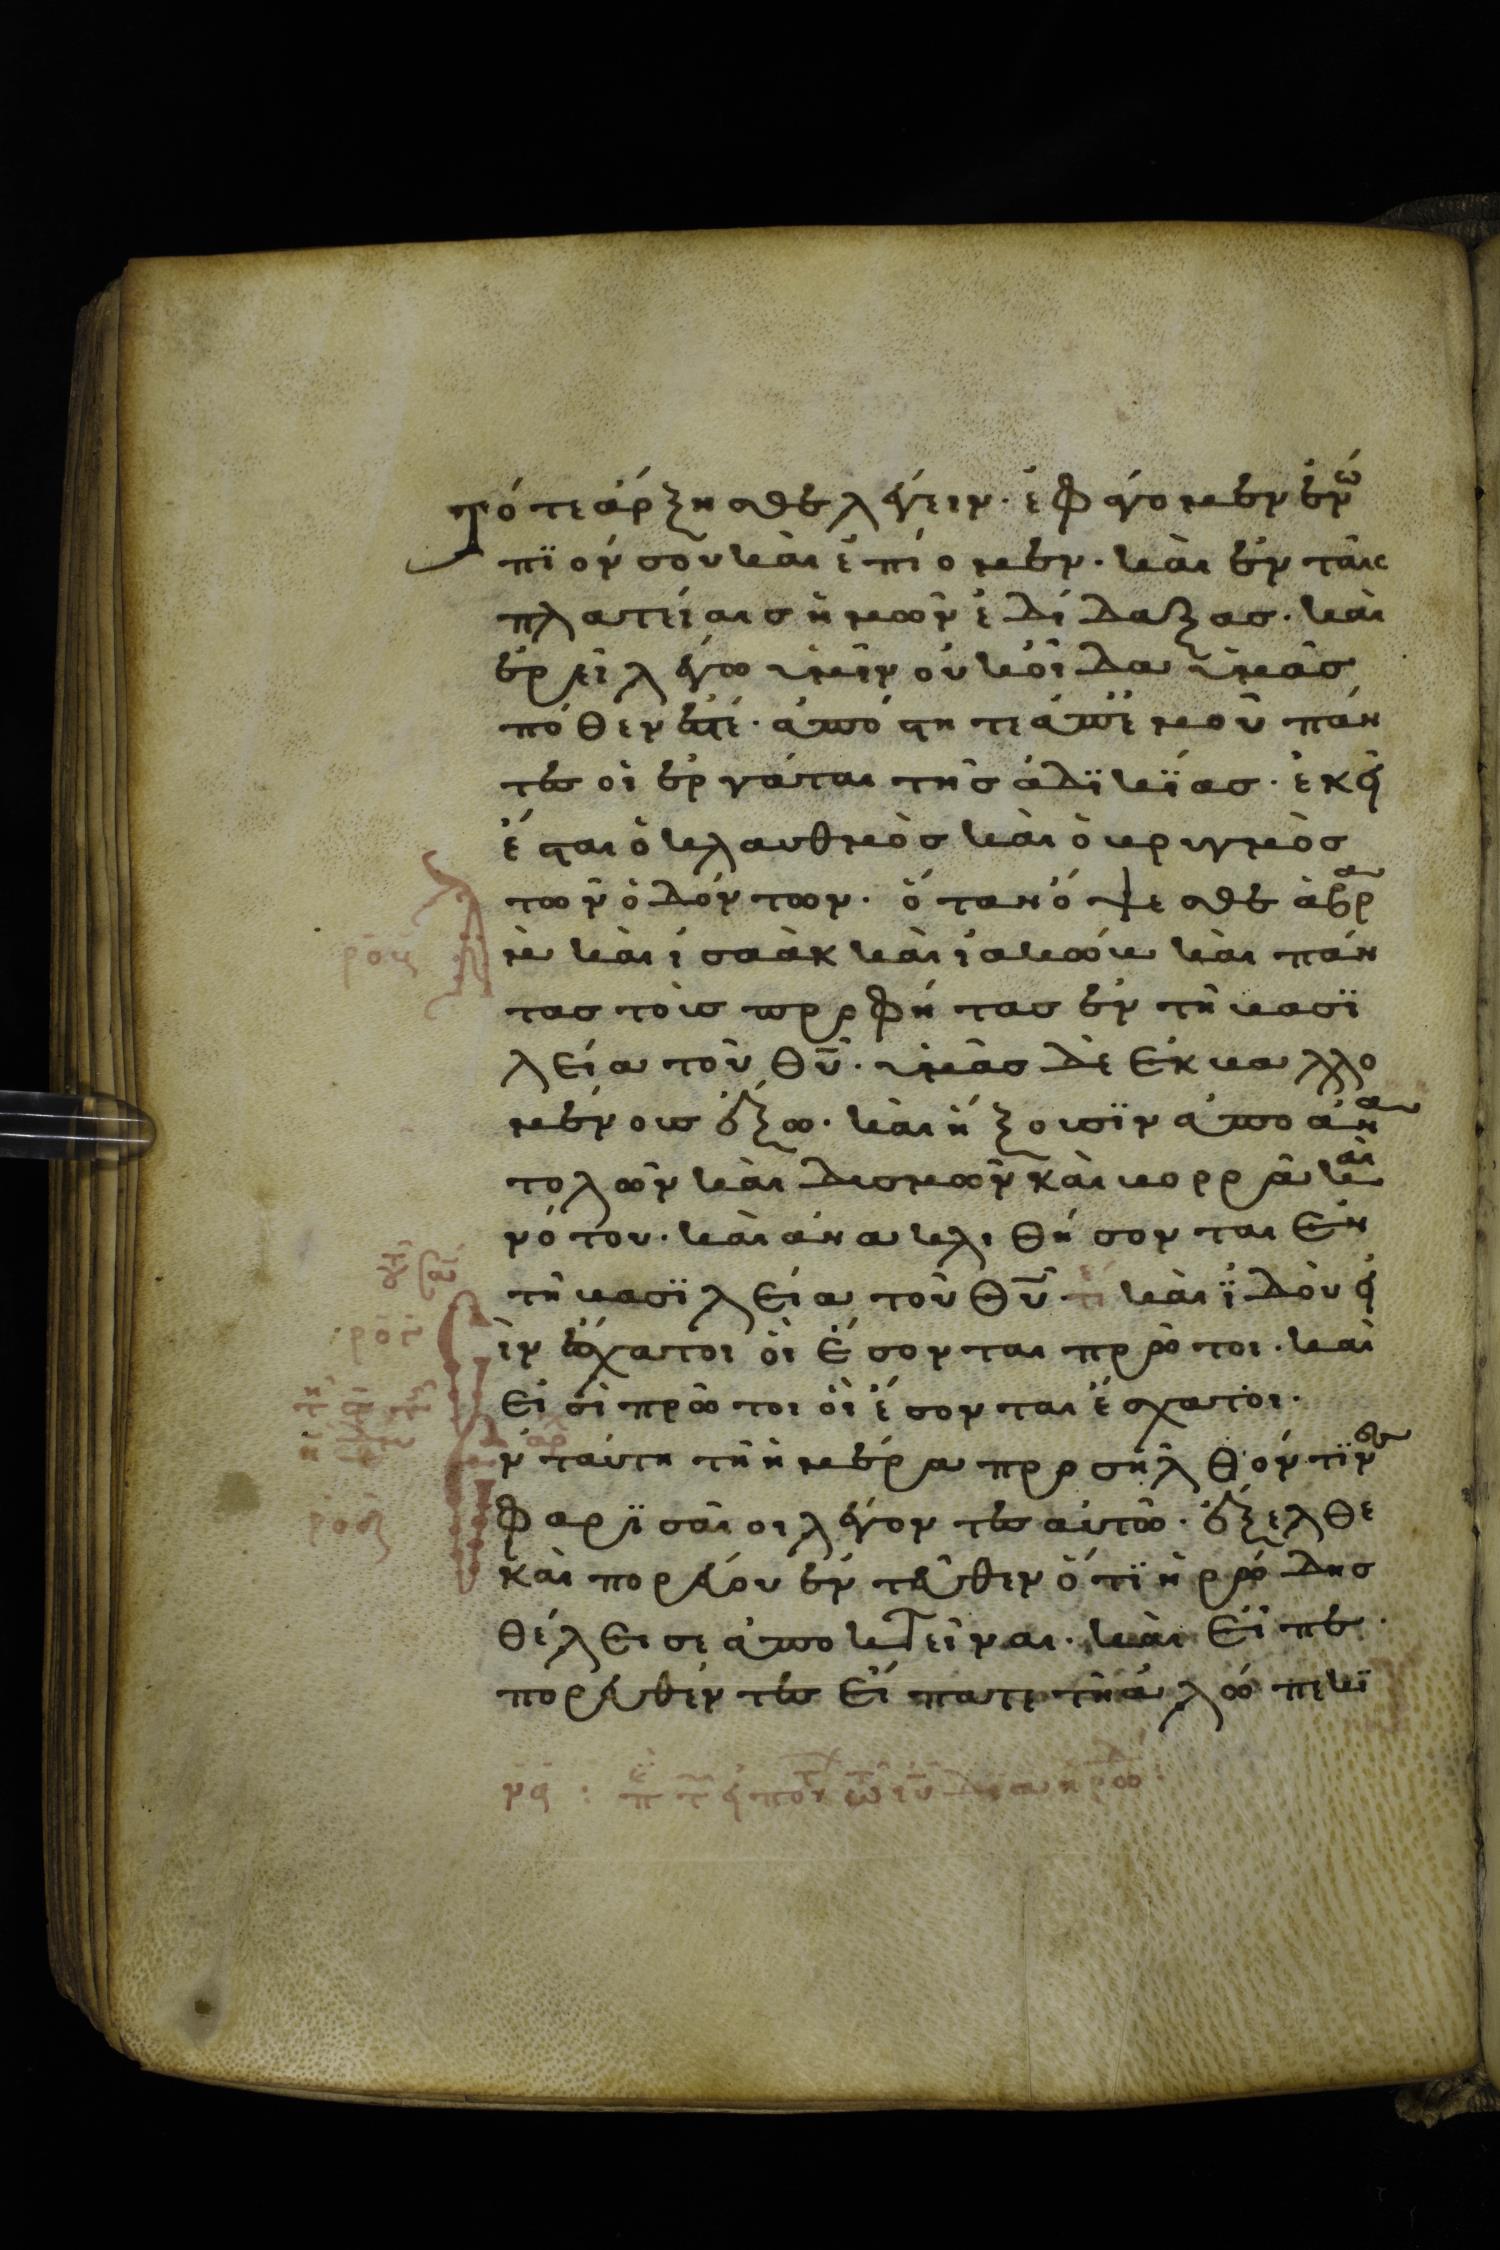 Τότε ἄρξησθε λέγειν· ἐφάγομεν ἐνώ
πϊόν σου καὶ ἐπίομεν· καὶ ἐν ταῖς
πλατείαισ ἡμῶν ἐδίδαξας· καὶ
ἐρεῖ λέγω ὑμῖν οὐκ οἶδα ὑμᾶσ
πόθεν ἐστέ· ἀπόστητε ἀπ' ἐμοῦ πάν
τες οἱ ἐργάται τῆσ ἀδϊκϊάσ· ἐκεῖ
ἔσται ὁ κλαυθμὸσ καὶ ὁ βρυγμὸσ
τῶν ὀδόντων· ὅταν ὄψεσθε ἀβρα
ὰμ καὶ ἰσαὰκ καὶ ἰακὼβ καὶ πάν
τασ τοὺσ προφήτασ ἐν τῇ βασϊ
λεία τοῦ θῦ· ὑμᾶσ δὲ ἐκβαλλο
μένουσ ἔξω· καὶ ἥξουσϊν ἀπὸ ἀνα
τολῶν καὶ δυσμῶν καὶ βορρᾶ καὶ
νότου· καὶ ἀνακλιθήσονται ἐν
τῇ βασϊλεία τοῦ θῦ· καὶ ϊδοὺ εἰ
σὶν ἔσχατοι οἳ ἔσονται πρῶτοι· καὶ
εἰσὶ πρῶτοι οἳ ἔσονται ἔσχατοι·
ν ταύτη τῇ ἡμέρα προσῆλθόν τϊνες
φαρϊσαῖοι λέγοντες αὐτῶ· ἔξελθε
καὶ πορεύου ἐντεῦθεν ὅτϊ ἡρώδησ
θέλει σε ἀποκτεῖναι· καὶ εἶπεν
πορευθέντες εἴπατε τῇ ἀλώπεκϊ